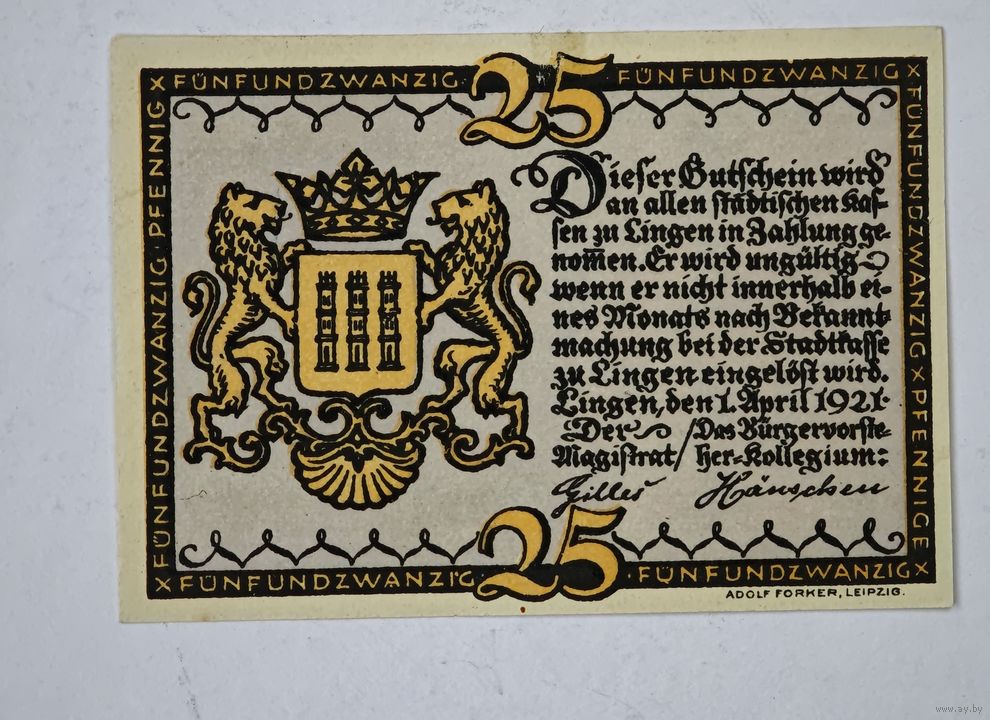 x FÜNFUNDZWANZIG · 25 · FÜNFUNDZWANZIG x
FÜNFUNDZWANZIG · PFENNIG
FÜNFUNDZWANZIG x PFENNIGE
Dieser Gutschein wird
an allen städtischen Kas-
sen zu Lingen in Zahlung ge-
nom̄en. Er wird ungültig
wenn er nicht innerhalb ei-
nes Monats nach Bekannt-
machung bei der Stadtkasse
zu Lingen eingelöst wird.
Lingen, den 1. April 1921.
Der / Das Bürgervorste-
Magistrat / her-Kollegium:
Gilles Hänschen
x FÜNFUNDZWANZIG · 25 · FÜNFUNDZWANZIG x
ADOLF FORKER, LEIPZIG.
www.ay.by